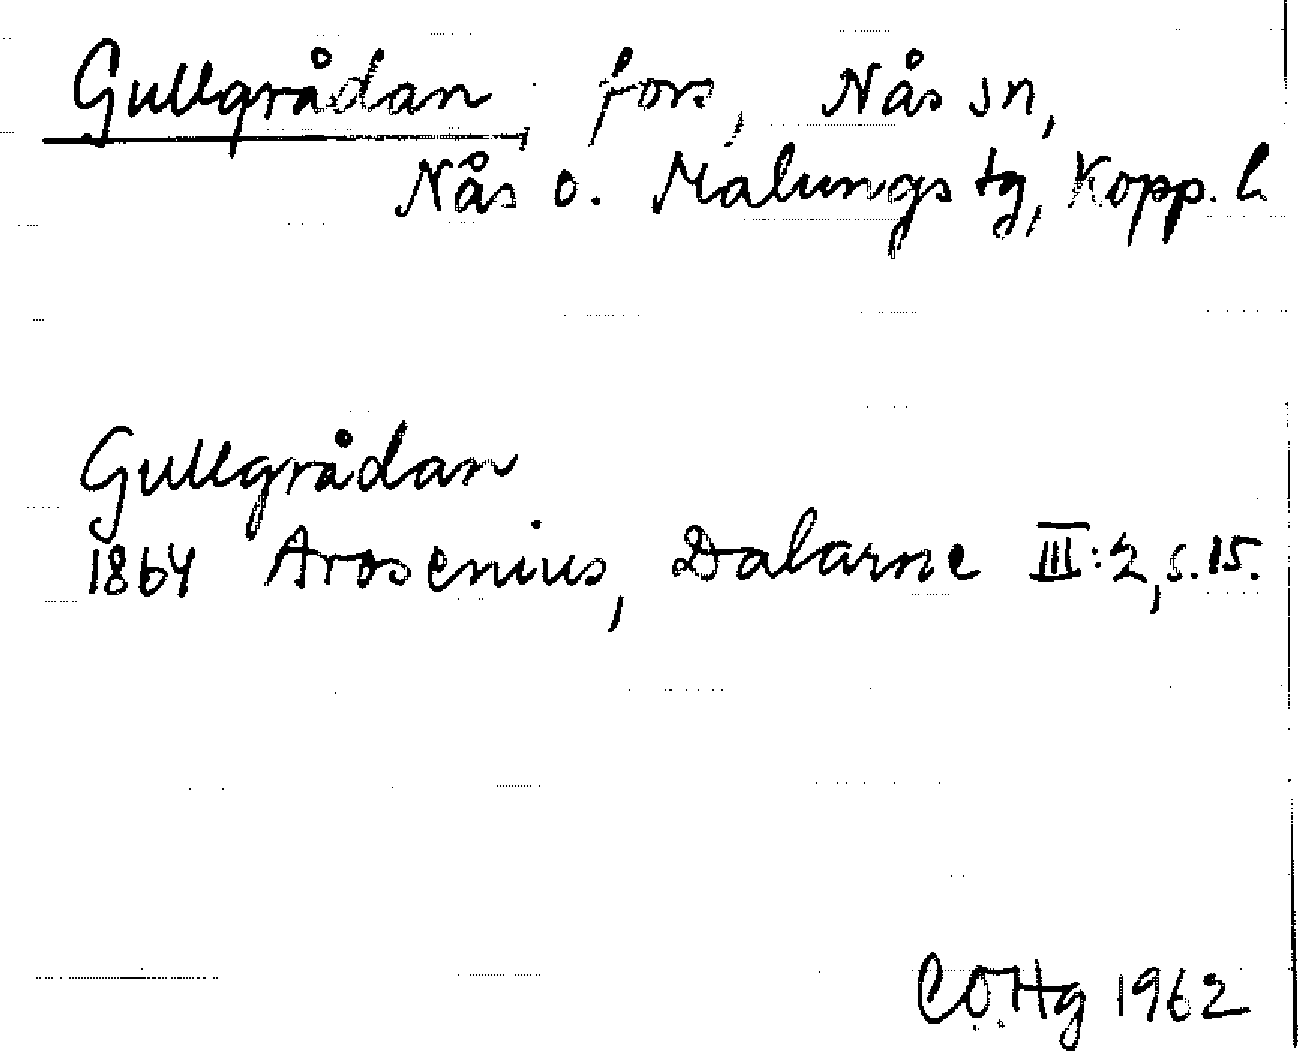 Gullgrådan fors, Nås sn,
Nås o. Malungs tg, Kopp. l.
Gullgrådan
1864 Arosenius, Dalarne III:2, s. 15.
CÖHg 1962